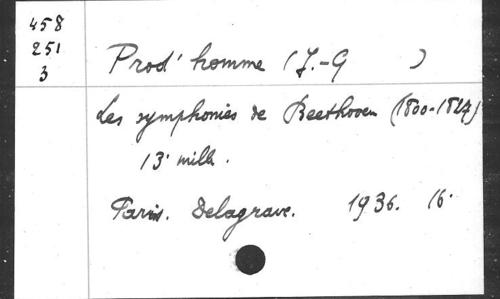 458
251
3
Prod'homme (J.-G )
Les symphonies de Beethoven (1800-1827)
13e mille.
Paris. Delagrave. 1936. 16°